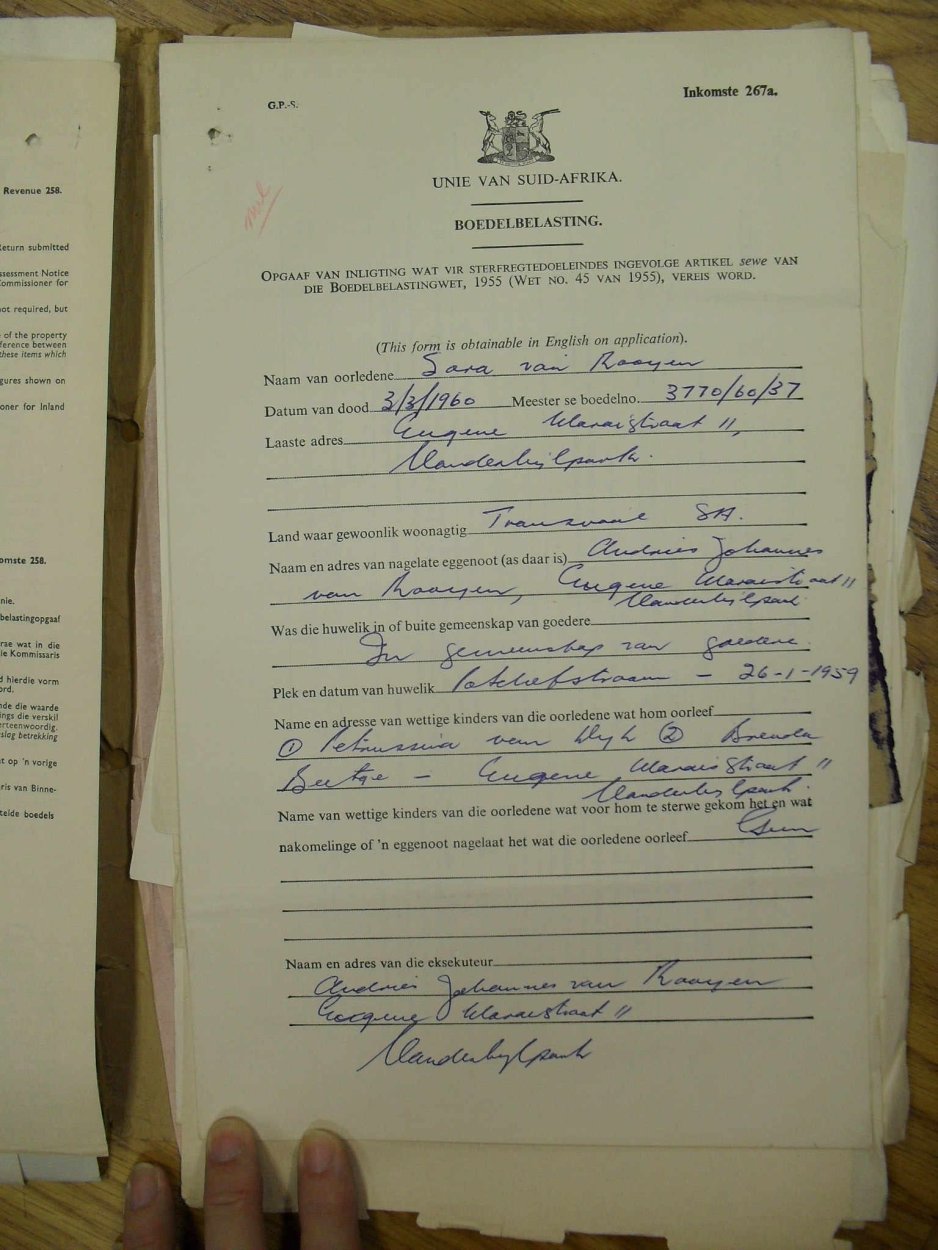 Revenue 258.
Return submitted
ssessment Notice
Commissioner for
not required, but
e of the property
ference between
these items which
gures shown on
oner for Inland
omste 258.
nie.
belastingopgaaf
rae wat in die
ie Kommissaris
d hierdie vorm
ord.
nde die waarde
ings die verskil
erteenwoordig.
slag betrekking
t op 'n vorige
ris van Binne-
telde boedels
G.P.-S.
Inkomste 267a.
UNIE VAN SUID-AFRIKA.
BOEDELBELASTING.
OPGAAF VAN INLIGTING WAT VIR STERFREGTEDOELEINDES INGEVOLGE ARTIKEL sewe VAN
DIE BOEDELBELASTINGWET, 1955 (WET NO. 45 VAN 1955), VEREIS WORD.
(This form is obtainable in English on application).
Naam van oorledene Sara van Rooyen
Datum van dood 3/3/1960 Meester se boedelno. 3770/60/37
Laaste adres Eugene Maraisstraat 11,
Vanderbijlpark.
Land waar gewoonlik woonagtig Transvaal SA.
Naam en adres van nagelate eggenoot (as daar is) Andries Johannes
van Rooyen, Eugene Maraisstraat 11
Vanderbijlpark.
Was die huwelik in of buite gemeenskap van goedere
In gemeenskap van goedere.
Plek en datum van huwelik Potchefstroom - 26-1-1959
Name en adresse van wettige kinders van die oorledene wat hom oorleef
① Petrussina van Dyk ② Brenda
Beetge - Eugene Marais Straat 11
Vanderbijlpark.
Name van wettige kinders van die oorledene wat voor hom te sterwe gekom het en wat
nakomelinge of 'n eggenoot nagelaat het wat die oorledene oorleef Geen
Naam en adres van die eksekuteur
Andries Johannes van Rooyen
Eugene Maraisstraat 11
Vanderbijlpark